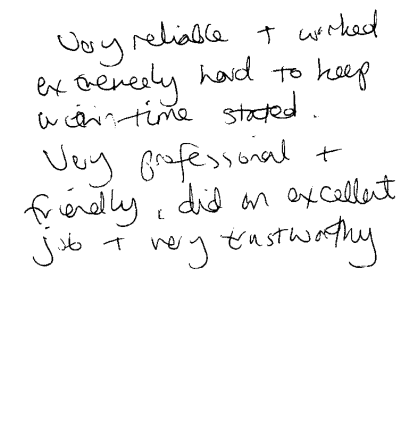 Very reliable + worked
extremely hard to keep
within time stated.
Very professional +
friendly, did an excellent
job + very trustworthy